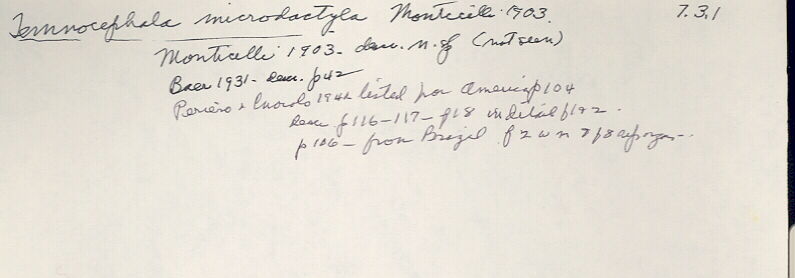 Temnocephala microdactyla Monticelli 1903. 7.3.1
Monticelli 1903 - desc. n.sp (not seen)
Baer 1931 - desc. p42
Pereira + Cuocolo 1941 listed for America p104
desc p116-117 - f18 in detail
p106 - from Brazil